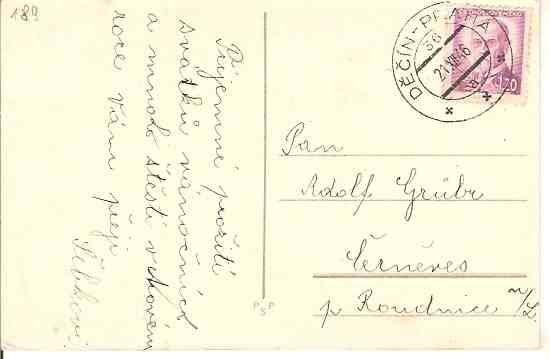 189
Příjemné prožití
svátků vánočních
a mnoho štěstí v novém
roce Vám přejí
DĚČÍN-PRAHA
36
21.XII.46
1.20
Pan
Adolf Grübr
Černěves
p Roudnice n/L.
PSP